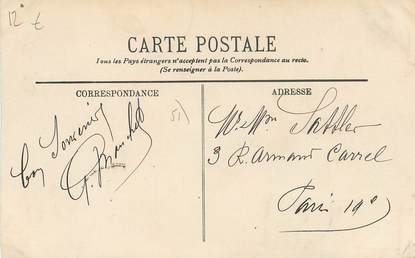 12 €
CARTE POSTALE
Tous les Pays étrangers n'acceptent pas la Correspondance au recto.
(Se renseigner à la Poste).
CORRESPONDANCE
Bon Souvenir
51)
ADRESSE
Sattler
3 R. Armand Carrel
Paris 19e